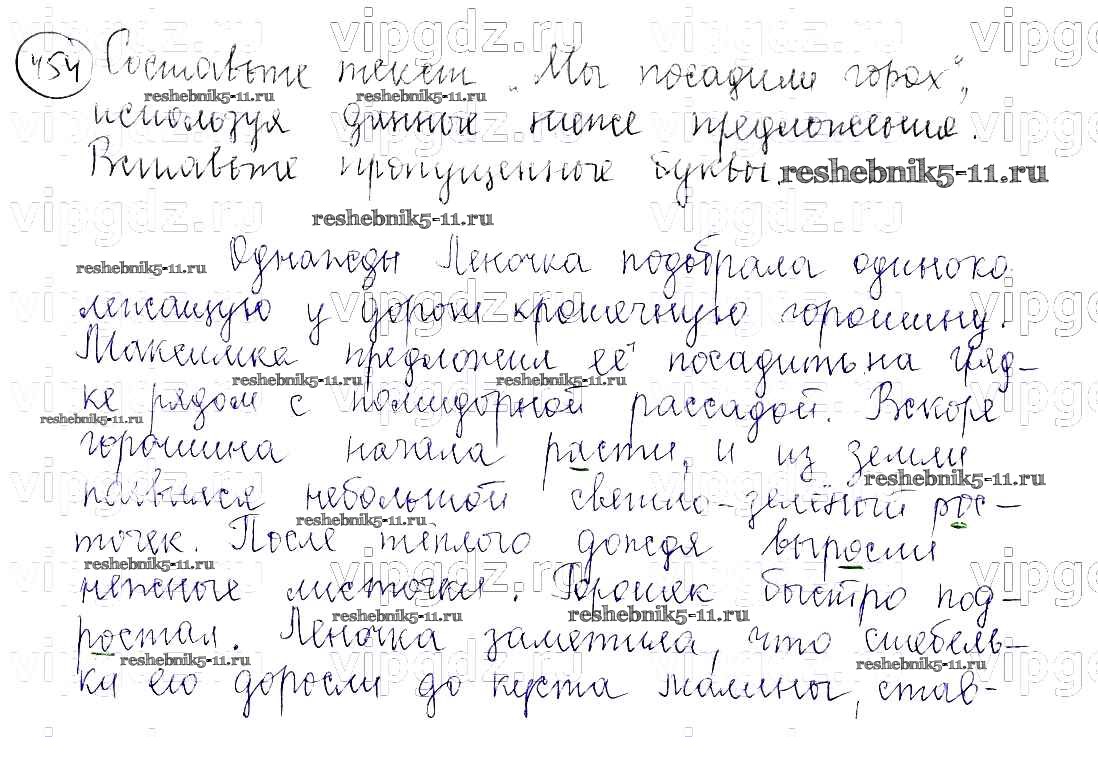 454 Составьте текст „Мы посадили горох",
используя данные ниже предложения.
Вставьте пропущенные буквы.
reshebnik5-11.ru
Однажды Леночка подобрала одиноко
лежащую у дороги крошечную горошину.
Максимка предложил её посадить на гряд-
ке рядом с помидорной рассадой. Вскоре
горошина начала расти, и из земли
появился небольшой светло-зелёный рос-
точек. После тёплого дождя выросли
нежные листочки. Горошек быстро под-
ростал. Леночка заметила, что стебель-
ки его доросли до куста малины, став-